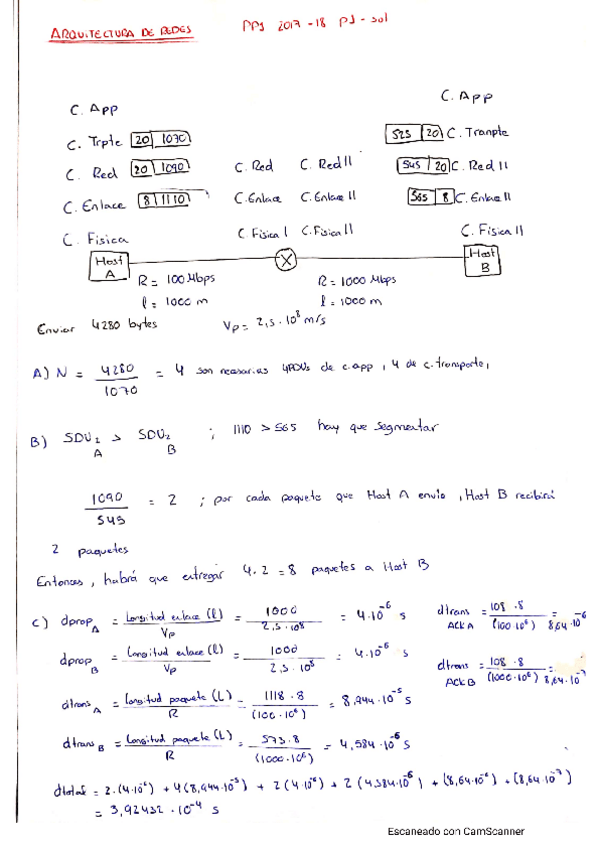 ARQUITECTURA DE REDES
PPJ 2017-18 PJ-sol
C. App
C. App
C. Trpte 20 1070
525 20 C. Tranpte
C. Red 20 1090
C. Red C. Red II
545 20 C. Red II
C. Enlace 8 1110
C. Enlace C. Enlace II
565 8 C. Enlace II
C. Fisica
C. Fisica I C. Fisica II
C. Fisica II
Host A
X
Host B
R = 100 Mbps
R = 1000 Mbps
l = 1000 m
l = 1000 m
Enviar 4280 bytes Vp = 2,5 · 10^8 m/s
A) N = 4280 / 1070 = 4 son necesarias 4PDUs de c.app, 4 de c.transporte,
B) SDU2 A > SDU2 B ; 1110 > 565 hay que segmentar
1090 / 545 = 2 ; por cada paquete que Host A envio, Host B recibirá
2 paquetes
Entonces, habrá que entregar 4·2=8 paquetes a Host B
C) dprop A = Longitud enlace (l) / Vp = 1000 / 2,5·10^8 = 4·10^-6 s
dtrans ACK A = 108·8 / (100·10^6) = 8,64·10^-6
dprop B = Longitud enlace (l) / Vp = 1000 / 2,5·10^8 = 4·10^-6 s
dtrans ACK B = 108·8 / (1000·10^6) = 8,64·10^-7
dtrans A = Longitud paquete (L) / R = 1118·8 / (100·10^6) = 8,944·10^-5 s
dtrans B = Longitud paquete (L) / R = 573·8 / (1000·10^6) = 4,584·10^-6 s
dtotal = 2·(4·10^-6) + 4(8,944·10^-5) + 2(4·10^-6) + 2(4,584·10^-6) + (8,64·10^-6) + (8,64·10^-7)
= 3,92432·10^-4 s
Escaneado con CamScanner